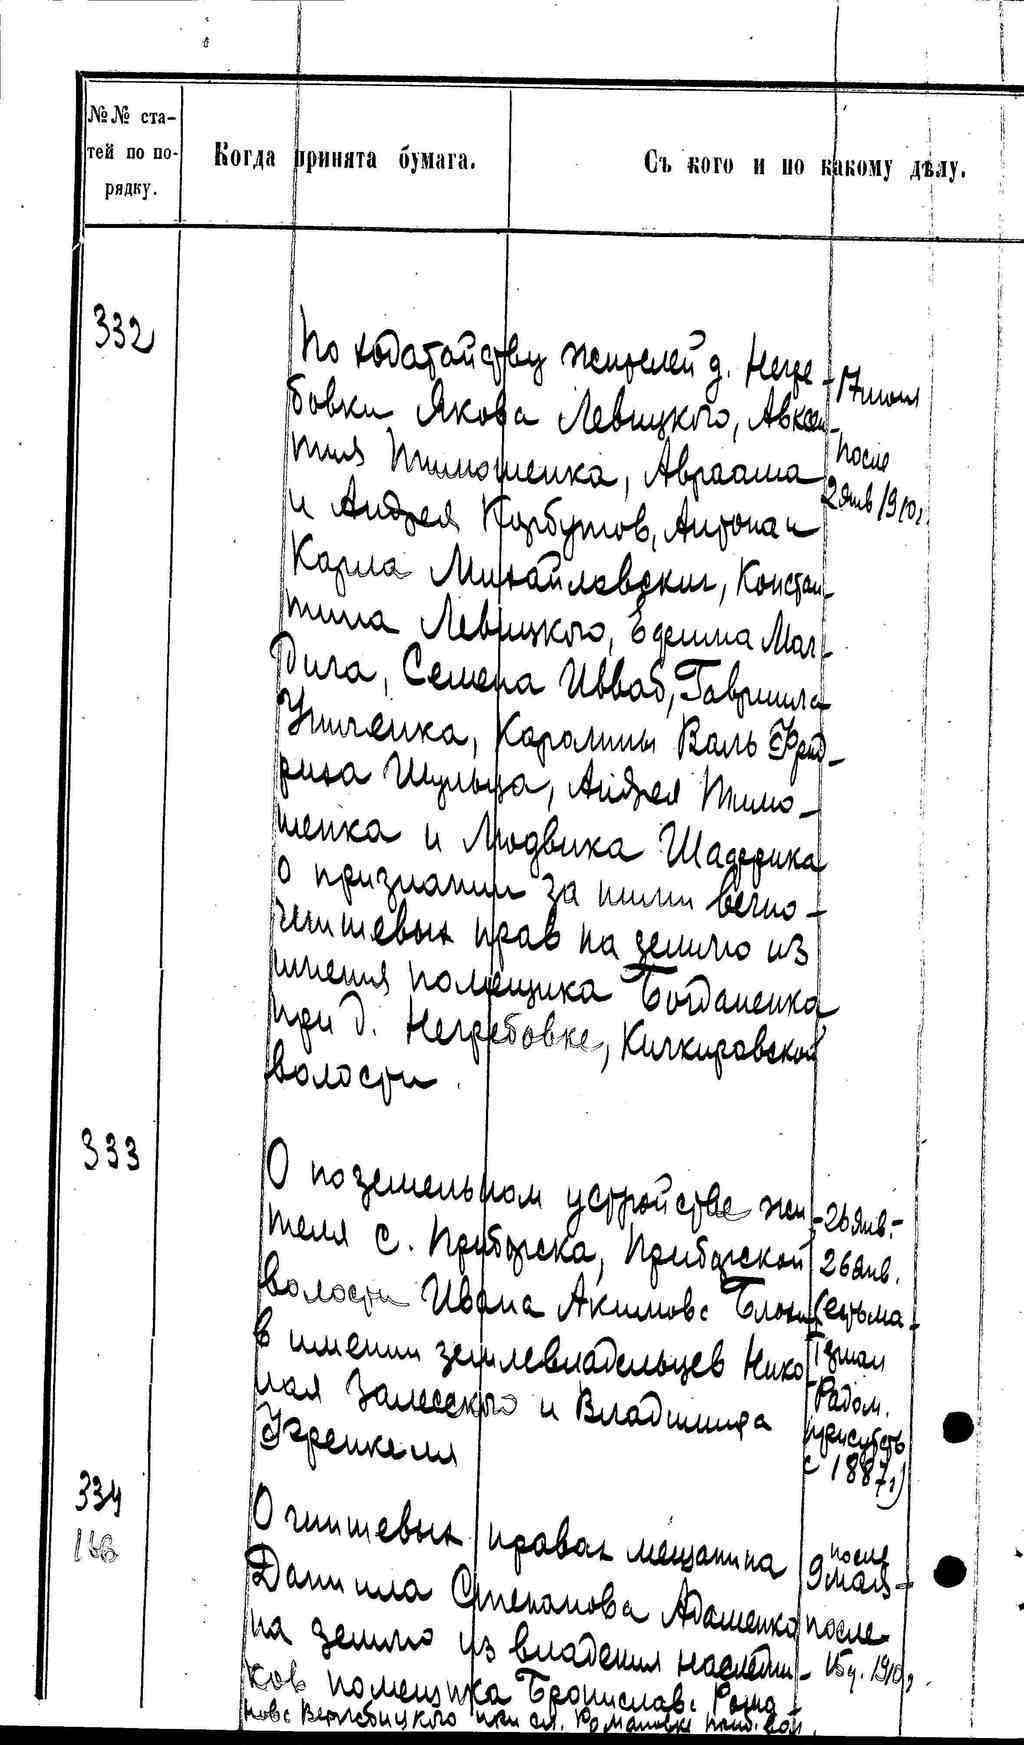 №№ ста-
тей по по-
рядку.
Когда принята бумага.
Съ кого и по какому дѣлу.
332
По ходатайству жителей д. Негре-
бовки Якова Левицкого, Авксен-
тия Тимошенка, Авраама
и Андрея Корбутов, Антона и
Карла Михайловских, Констан-
тина Левицкого, Ефима Мал-
Дига, Семена Ивваб, Гавриила
Каролины Валь Фрид-
риха Шульца, Андрея Тимо-
шенка и Людвика Шадерика
о признании за ними вечно-
чиншевых прав на землю из
имения помещика Богданенка
при д. Негребовке, Кичкировской
волости.
17 июня
после
2 янв 1910 г.
333
О поземельном устройстве жи-
теля с. Приборска, Приборской
волости Ивана Акимова
в имении землевладельцев Нико
лая Залесского и Владимира
Френкеля
26 янв.-
26 янв.
Радом.
присутств
с 1887 г)
334
О чиншевых правах мещанина
Даниила Степанова Адаменко
на землю из владения наследни-
ков помещика Бронислава Рома-
нова при сл. Романовке
после
9 мая-
после
1910 г